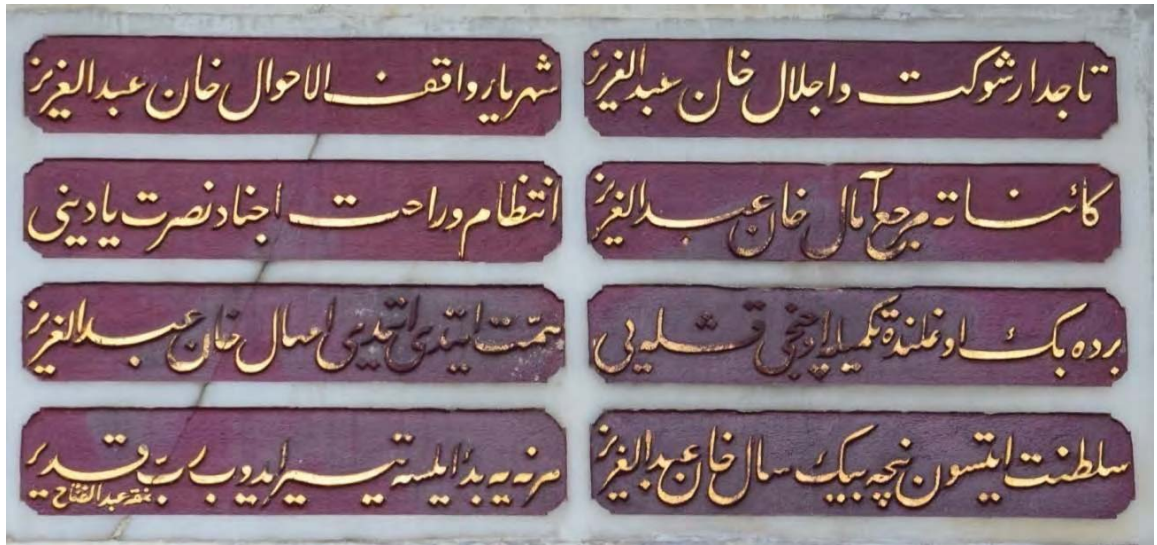 تاجدار شوکت و اجلال خان عبدالعزیز
شهریار واقف الاحوال خان عبدالعزیز
کائناته مرجع آمال خان عبدالعزیز
انتظام و راحت اجناد نصرت یادینی
برده بک اوغلنده تکمیلا اوچنجی قشله یی
همت ایتدی ایتدی امسال خان عبدالعزیز
سلطنت ایتسون نیچه بیک سال خان عبدالعزیز
هر نه یه بدأ ایلسه تیسیر ایدوب رب قدیر
نمقه عبدالفتاح